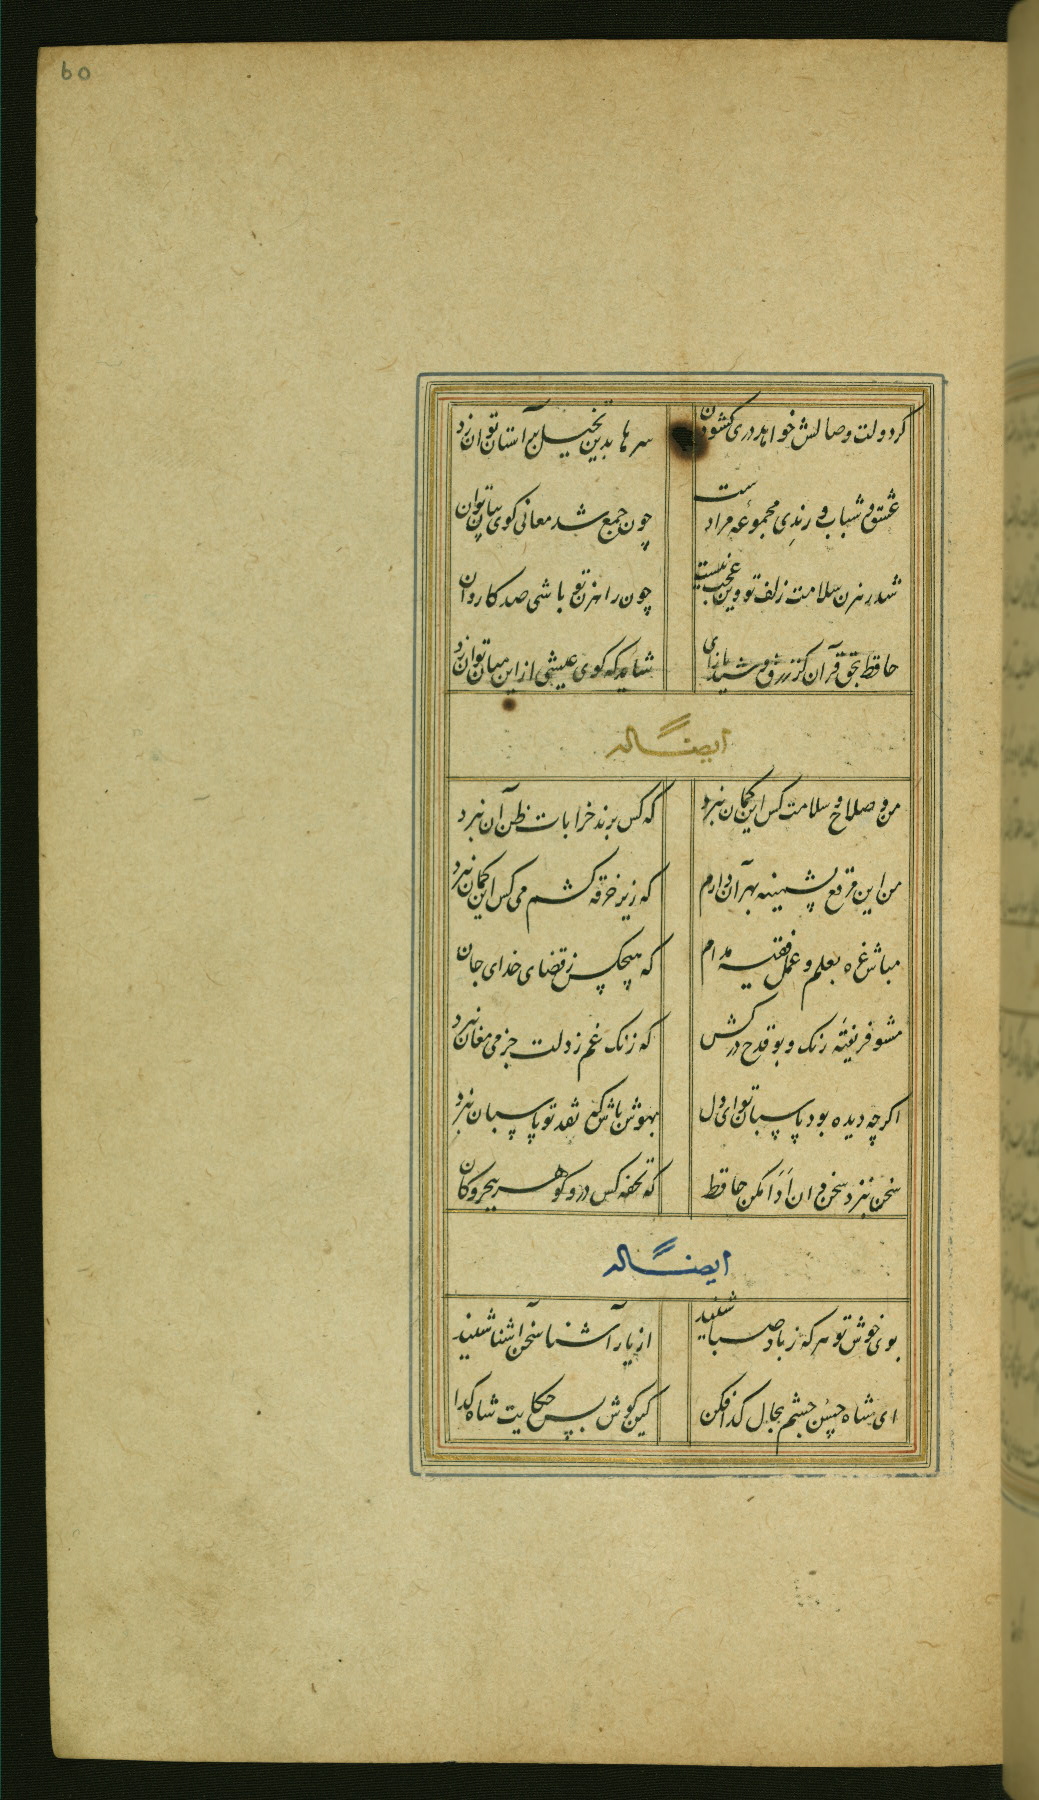 60
کر دولت وصالش خواهد دری کشودن
سرها بدین تخیل بر آستان توان زد
عشق و شباب و رندی مجموعه مرادست
چون جمع شد معانی کوی بیان توان
شد رهزن سلامت زلف تو وین عجب نیست
چون راهزن تو باشی صد کاروان
حافظ بحق قرآن کز زرق و شید بازای
شاید که کوی عیشی از این میان توان زد
ایضا له
من و صلاح و سلامت کس این کمان نبرد
که کس برند خرابات ظن آن نبرد
من این مرقع پشمینه بهر آن دارم
که زیر خرقه کشم می کس این کمان نبرد
مباش غره بعلم و عمل فقیه مدام
که هیچکس ز قضای خدای جان
مشو فریفتهٔ رنک و بو قدح درکش
که زنک غم ز دلت جز می مغان نبرد
اکرچه دیده بود پاسبان تو ای دل
بهوش باش که نقد تو پاسبان نبرد
سخن بنزد سخن دان ادا مکن حافظ
که تحفه کس در و کوهر ببحر و کان
ایضا له
بوی خوش تو هر که ز باد صبا شنید
از یار آشنا سخن آشنا شنید
ای شاه حسن چشم بحال کدا فکن
کین کوش بس حکایت شاه کدا